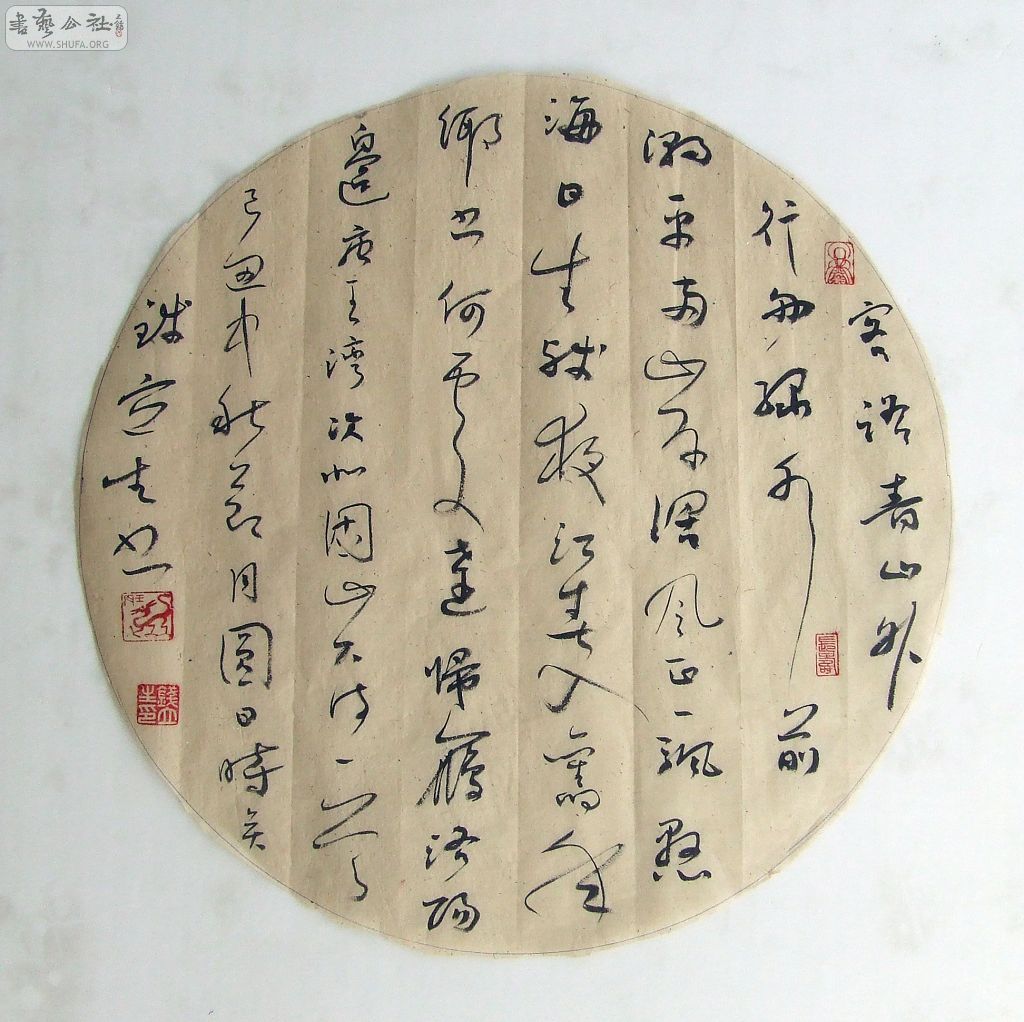 書藝公社
WWW.SHUFA.ORG
客路青山外
行舟綠水前
潮平兩岸闊風正一帆懸
海日生殘夜江春入舊年
鄉書何處達歸雁洛陽
邊唐王灣次北固山下詩一首
己丑中秋節月圓日時
錢生書